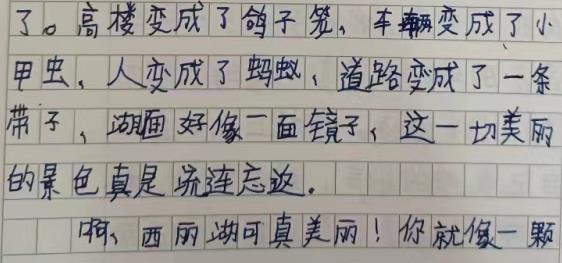 了。高楼变成了鸽子笼，车辆变成了小
甲虫，人变成了蚂蚁，道路变成了一条
带子，湖面好像一面镜子，这一切美丽
的景色真是流连忘返。
啊，西丽湖可真美丽！你就像一颗